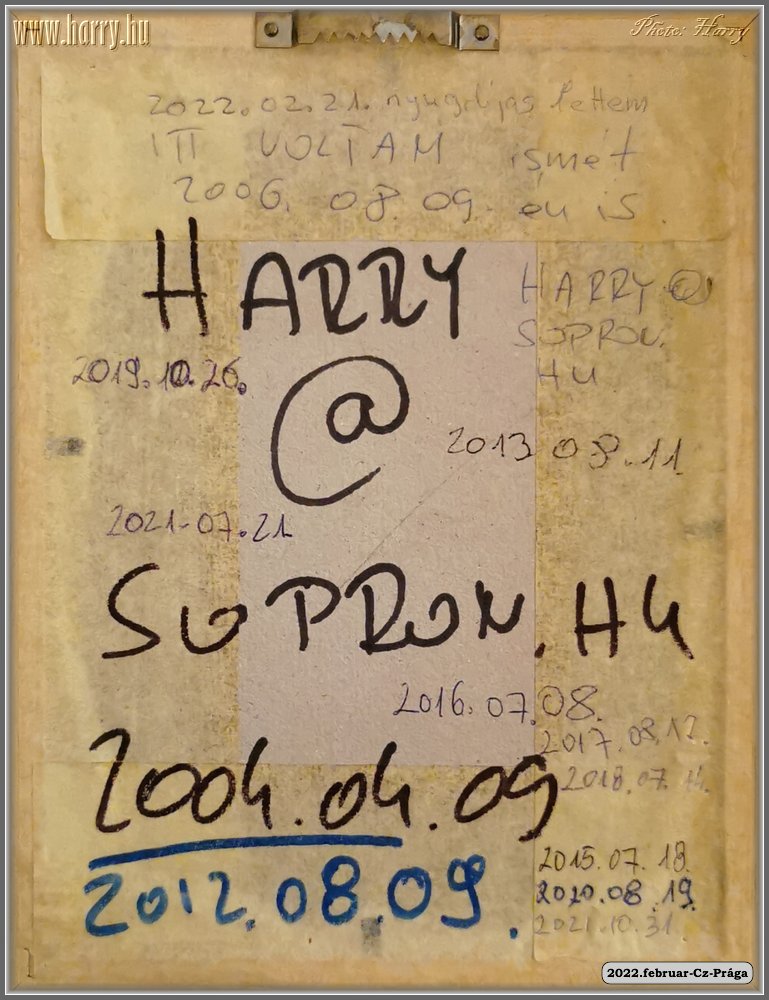 www.harry.hu
Photo: Harry
2022.02.21. nyugdíjas lettem
ITT VOLTAM ismét
2006. 08. 09. én is
HARRY
HARRY@
SOPRON.
HU
2019.10.26.
@
2013 08.11
2021-07.21
SOPRON.HU
2016.07.08.
2017.08.12.
2018.07.14.
2004.04.09
2015.07.18.
2012.08.09.
2020.08.19.
2021.10.31
2022.februar-Cz-Prága